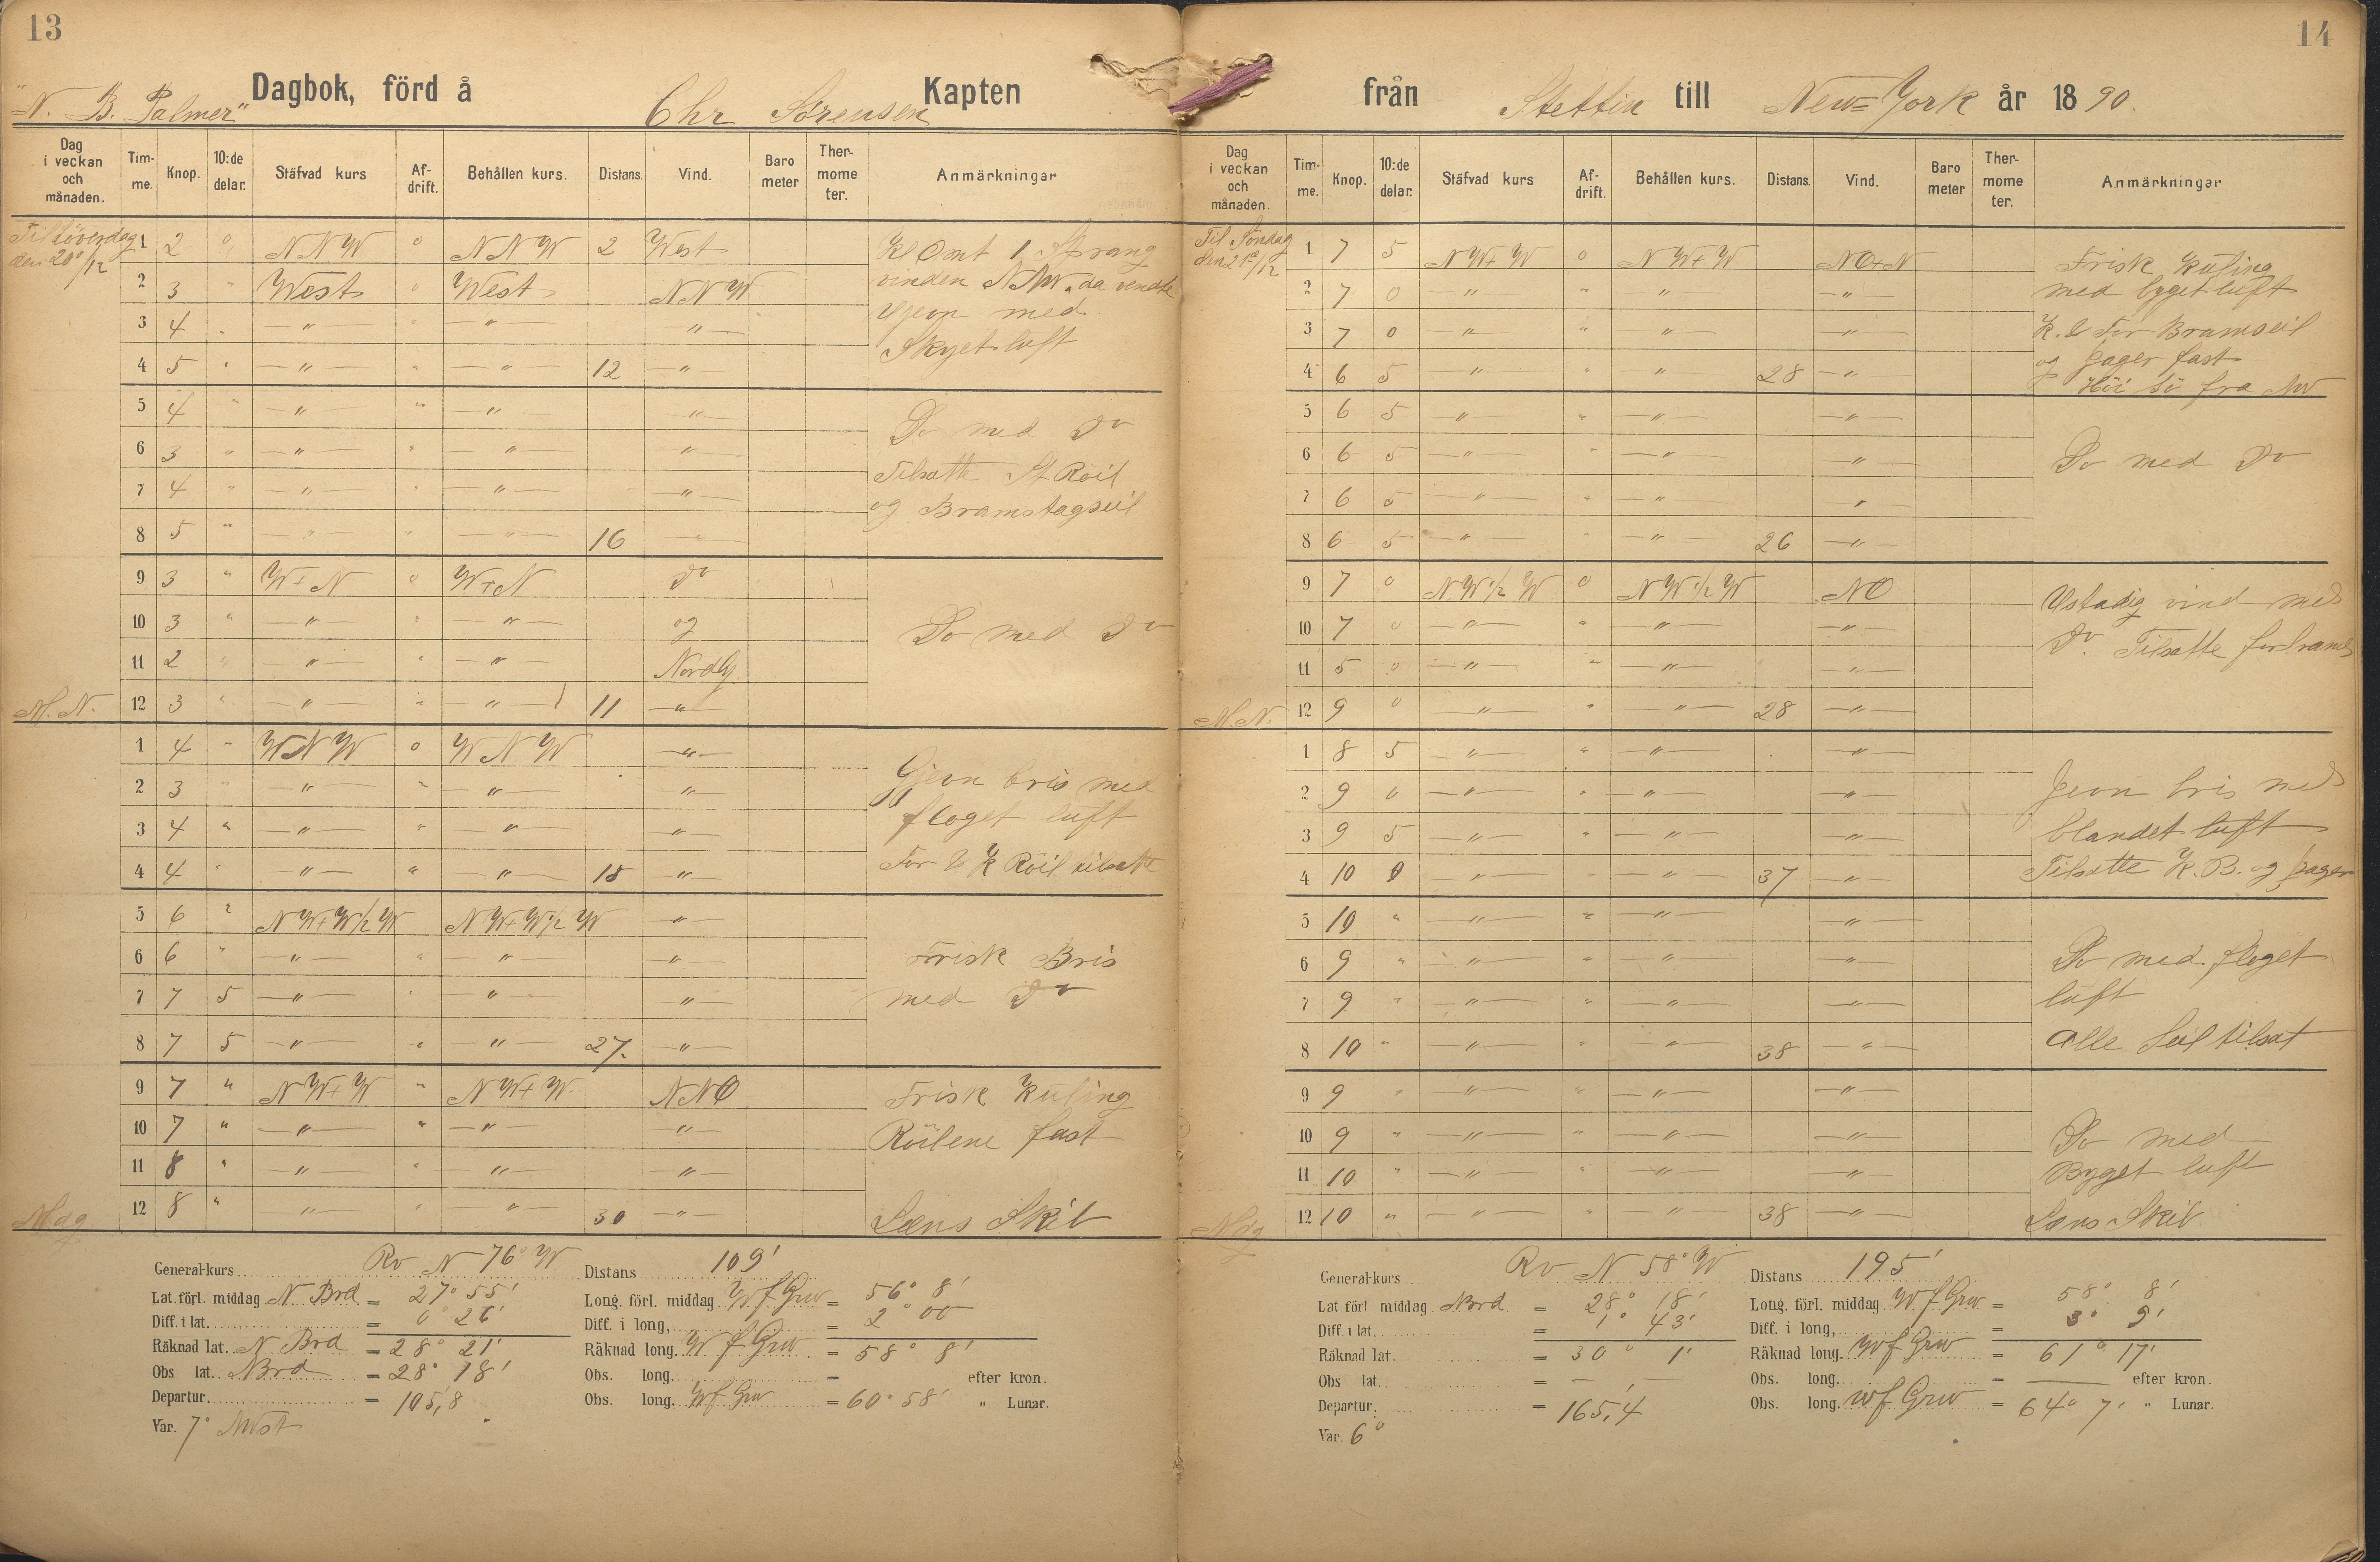 13
"N. B. Palmer" Dagbok, förd å Chr Sørensen Kapten
Dag i veckan och månaden. Timme. Knop. 10:de delar. Stäfvad kurs Afdrift. Behållen kurs. Distans. Vind. Barometer Thermometer. Anmärkningar
Til Löverdag 1 2 0 NNW 0 NNW 2 West Kl Omt 1 Sprang
den 20/12 2 3 " West 0 West NNW vinden NNW. da vendte
3 4 " — " — " — " — " — Gjevn med
4 5 " — " — " — " — 12 — " — Skyet luft
5 4 " — " — " — " — — " —
6 3 " — " — " — " — — " — Do med Do
7 4 " — " — " — " — — " — Tilsatte St Röil
8 5 " — " — " — " — 16 — " — og Bramstagseil
9 3 " W+N 0 W+N Do
10 3 " — " — " — " — og Do med Do
11 2 " — " — " — " — Nordlg.
M. N. 12 3 " — " — " — " — 11 — " —
1 4 " WNW 0 WNW — " —
2 3 " — " — " — " — — " — Gjevn bris med
3 4 " — " — " — " — — " — floget luft
4 4 " — " — " — " — 15 — " — For & K Röil tilsatte
5 6 " NW+W½W NW+W½W — " —
6 6 " — " — " — " — — " — Frisk Bris
7 7 5 — " — " — " — — " — med Do
8 7 5 — " — " — " — 27. — " —
9 7 " NW+W " NW+W. NNO Frisk Kuling
10 7 " — " — " — " — — " — Röilene fast
11 8 " — " — " — " — — " —
Mdg 12 8 " — " — " — " — 30 — " — Læns Skib
General-kurs Rv N 76° W Distans 109'
Lat. förl. middag N Brd = 27° 55' Long. förl. middag W f Grw = 56° 8'
Diff. i lat. = 0° 26' Diff. i long, = 2° 00
Räknad lat. N Brd = 28° 21' Räknad long. W f Grw = 58° 8'
Obs lat. NBrd = 28° 18' Obs. long. = efter kron.
Departur. = 105,8 Obs. long. W f Grw = 60° 58' " Lunar.
Var. 7° NWst
14
från Stettin till New=York år 1890.
Dag i veckan och månaden. Timme. Knop. 10:de delar. Stäfvad kurs Afdrift. Behållen kurs. Distans. Vind. Barometer Thermometer. Anmärkningar
Til Søndag 1 7 5 NW+W 0 NW+W NO+N Frisk Kuling
den 21/12 2 7 0 — " — " — " — — " — med byget luft
3 7 0 — " — " — " — — " — K. & For Bramseil
4 6 5 — " — " — " — 28 — " — og Jager fast
Höi Sö fra NW
5 6 5 — " — " — " — — " —
6 6 5 — " — " — " — — " — Do med Do
7 6 5 — " — " — " — "
8 6 5 — " — " — " — 26 — " —
9 7 0 NW½W 0 NW½W NO Ustadig vind med
10 7 0 — " — " — " — — " — Do. Tilsatte forbrams
11 5 0 — " — " — " — — " —
M. N. 12 9 0 — " — " — " — 28 — " —
1 8 5 — " — " — " — — " —
2 9 0 — " — " — " — — " — Jevn bris med
3 9 5 — " — " — " — — " — blandet luft
4 10 0 — " — " — " — 37 — " — Tilsatte K. B. og Jager
5 10 " — " — " — " — — " —
6 9 " — " — " — " — — " — Do med. floget
7 9 " — " — " — " — — " — luft
8 10 " — " — " — " — 38 — " — Alle Seil tilsat
9 9 " — " — " — " — — " —
10 9 " — " — " — " — — " — Do med
11 10 " — " — " — " — — " — Byget luft
Mdg 12 10 " — " — " — " — 38 — " — Læns Skib
General-kurs Rv N 58° W Distans 195'
Lat förl middag Nbrd = 28° 18' Long. förl. middag W. f Grw. = 58° 8'
Diff. i lat. = 1° 43' Diff. i long, = 3° 9'
Räknad lat. = 30° 1' Räknad long. W f Grw = 61° 17'
Obs lat. = — — Obs. long. = — efter kron.
Departur. = 165,4 Obs. long. W f Grw = 64° 7' " Lunar.
Var. 6°